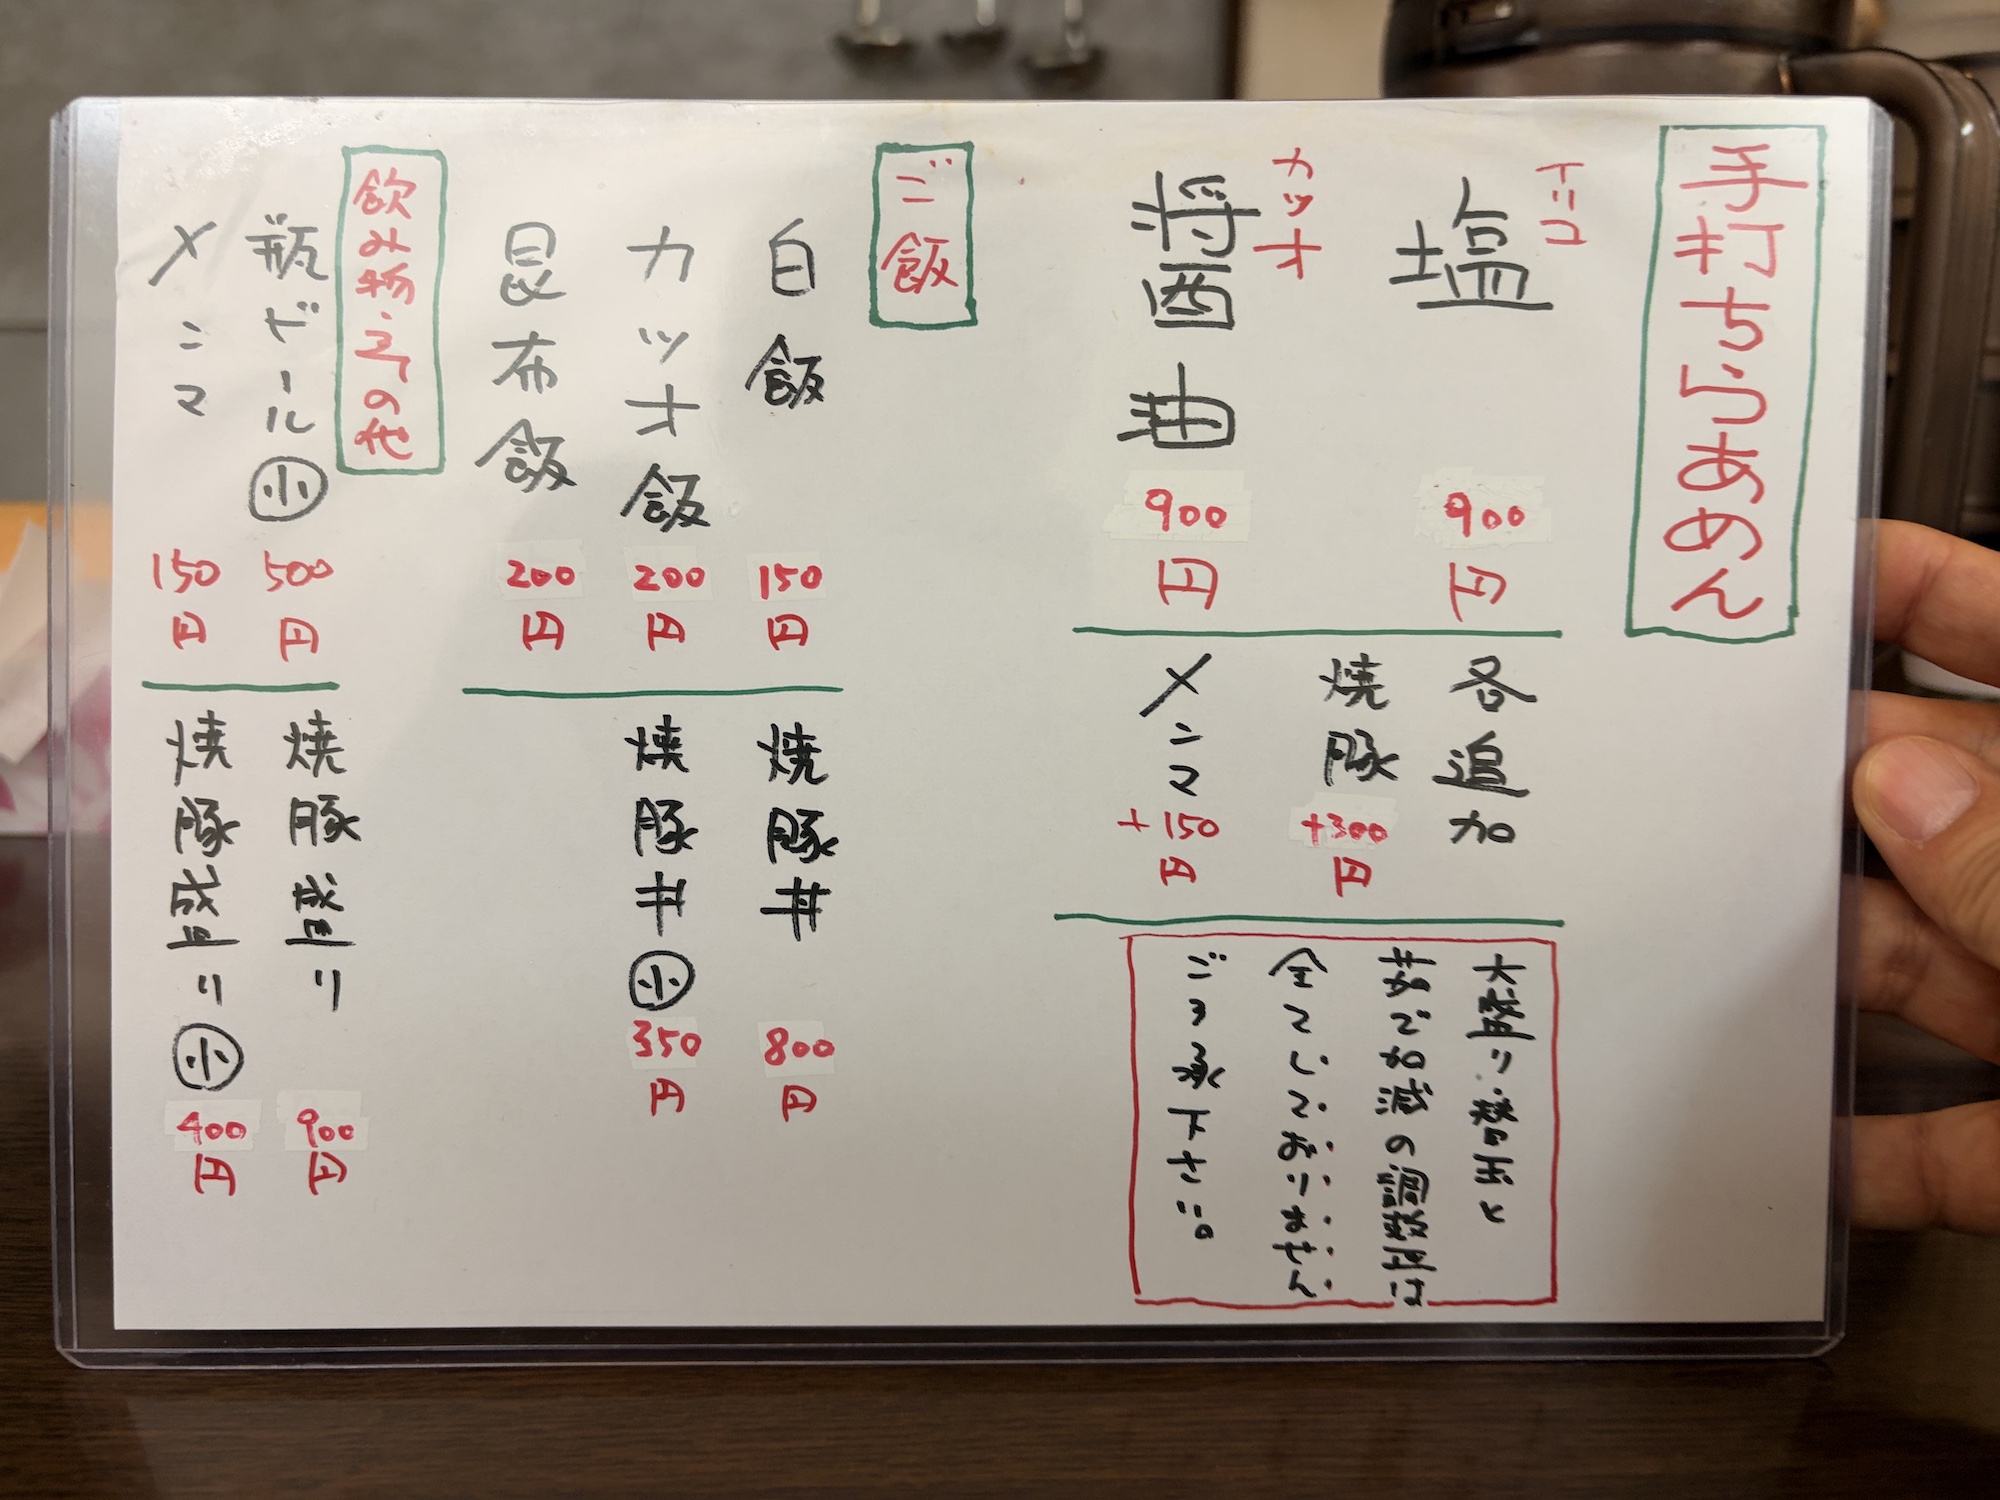 手打ちらあめん
イリコ
塩
900
円
カツオ
醤油
900
円
各追加
焼豚
+300
円
メンマ
+150
円
大盛り・替玉と
茹で加減の調整は
全てしておりません
ご了承下さい。
ご飯
白飯
150
円
カツオ飯
200
円
昆布飯
200
円
焼豚丼
800
円
焼豚丼小
350
円
飲み物・その他
瓶ビール小
500
円
メンマ
150
円
焼豚盛り
900
円
焼豚盛り小
400
円